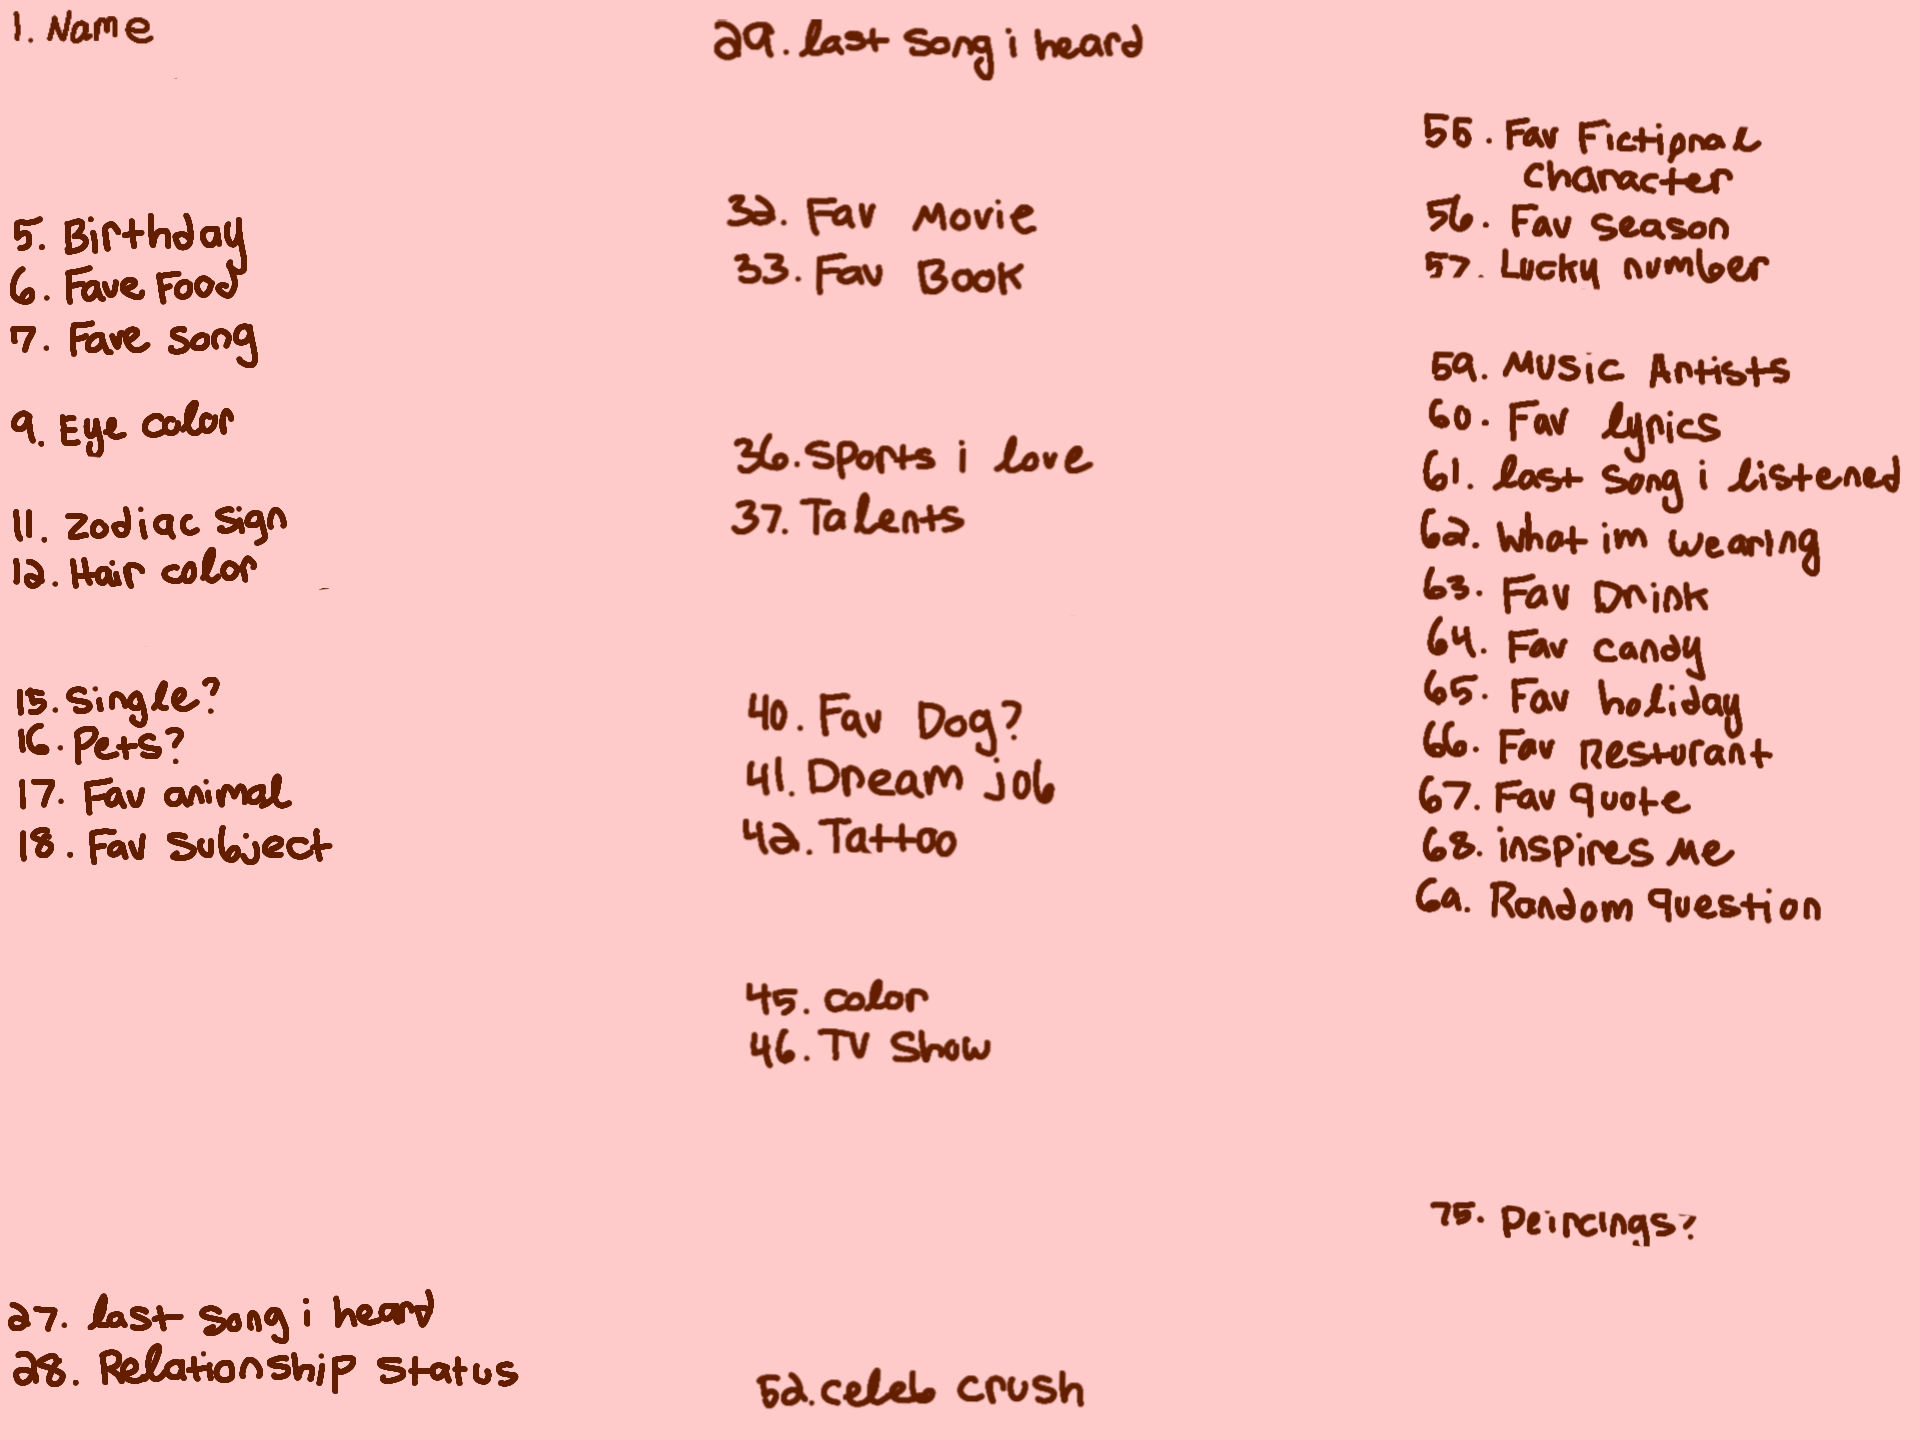 1. Name
5. Birthday
6. Fave Food
7. Fave song
9. Eye color
11. Zodiac Sign
12. Hair color
15. Single?
16. Pets?
17. Fav animal
18. Fav Subject
27. last song i heard
28. Relationship Status
29. last song i heard
32. Fav Movie
33. Fav Book
36. Sports i love
37. Talents
40. Fav Dog?
41. Dream job
42. Tattoo
45. color
46. TV Show
52. celeb crush
55. Fav Fictional
Character
56. Fav season
57. Lucky number
59. Music Artists
60. Fav lyrics
61. last song i listened
62. What im wearing
63. Fav Drink
64. Fav candy
65. Fav holiday
66. Fav Resturant
67. Fav quote
68. inspires Me
69. Random question
75. Peircings?